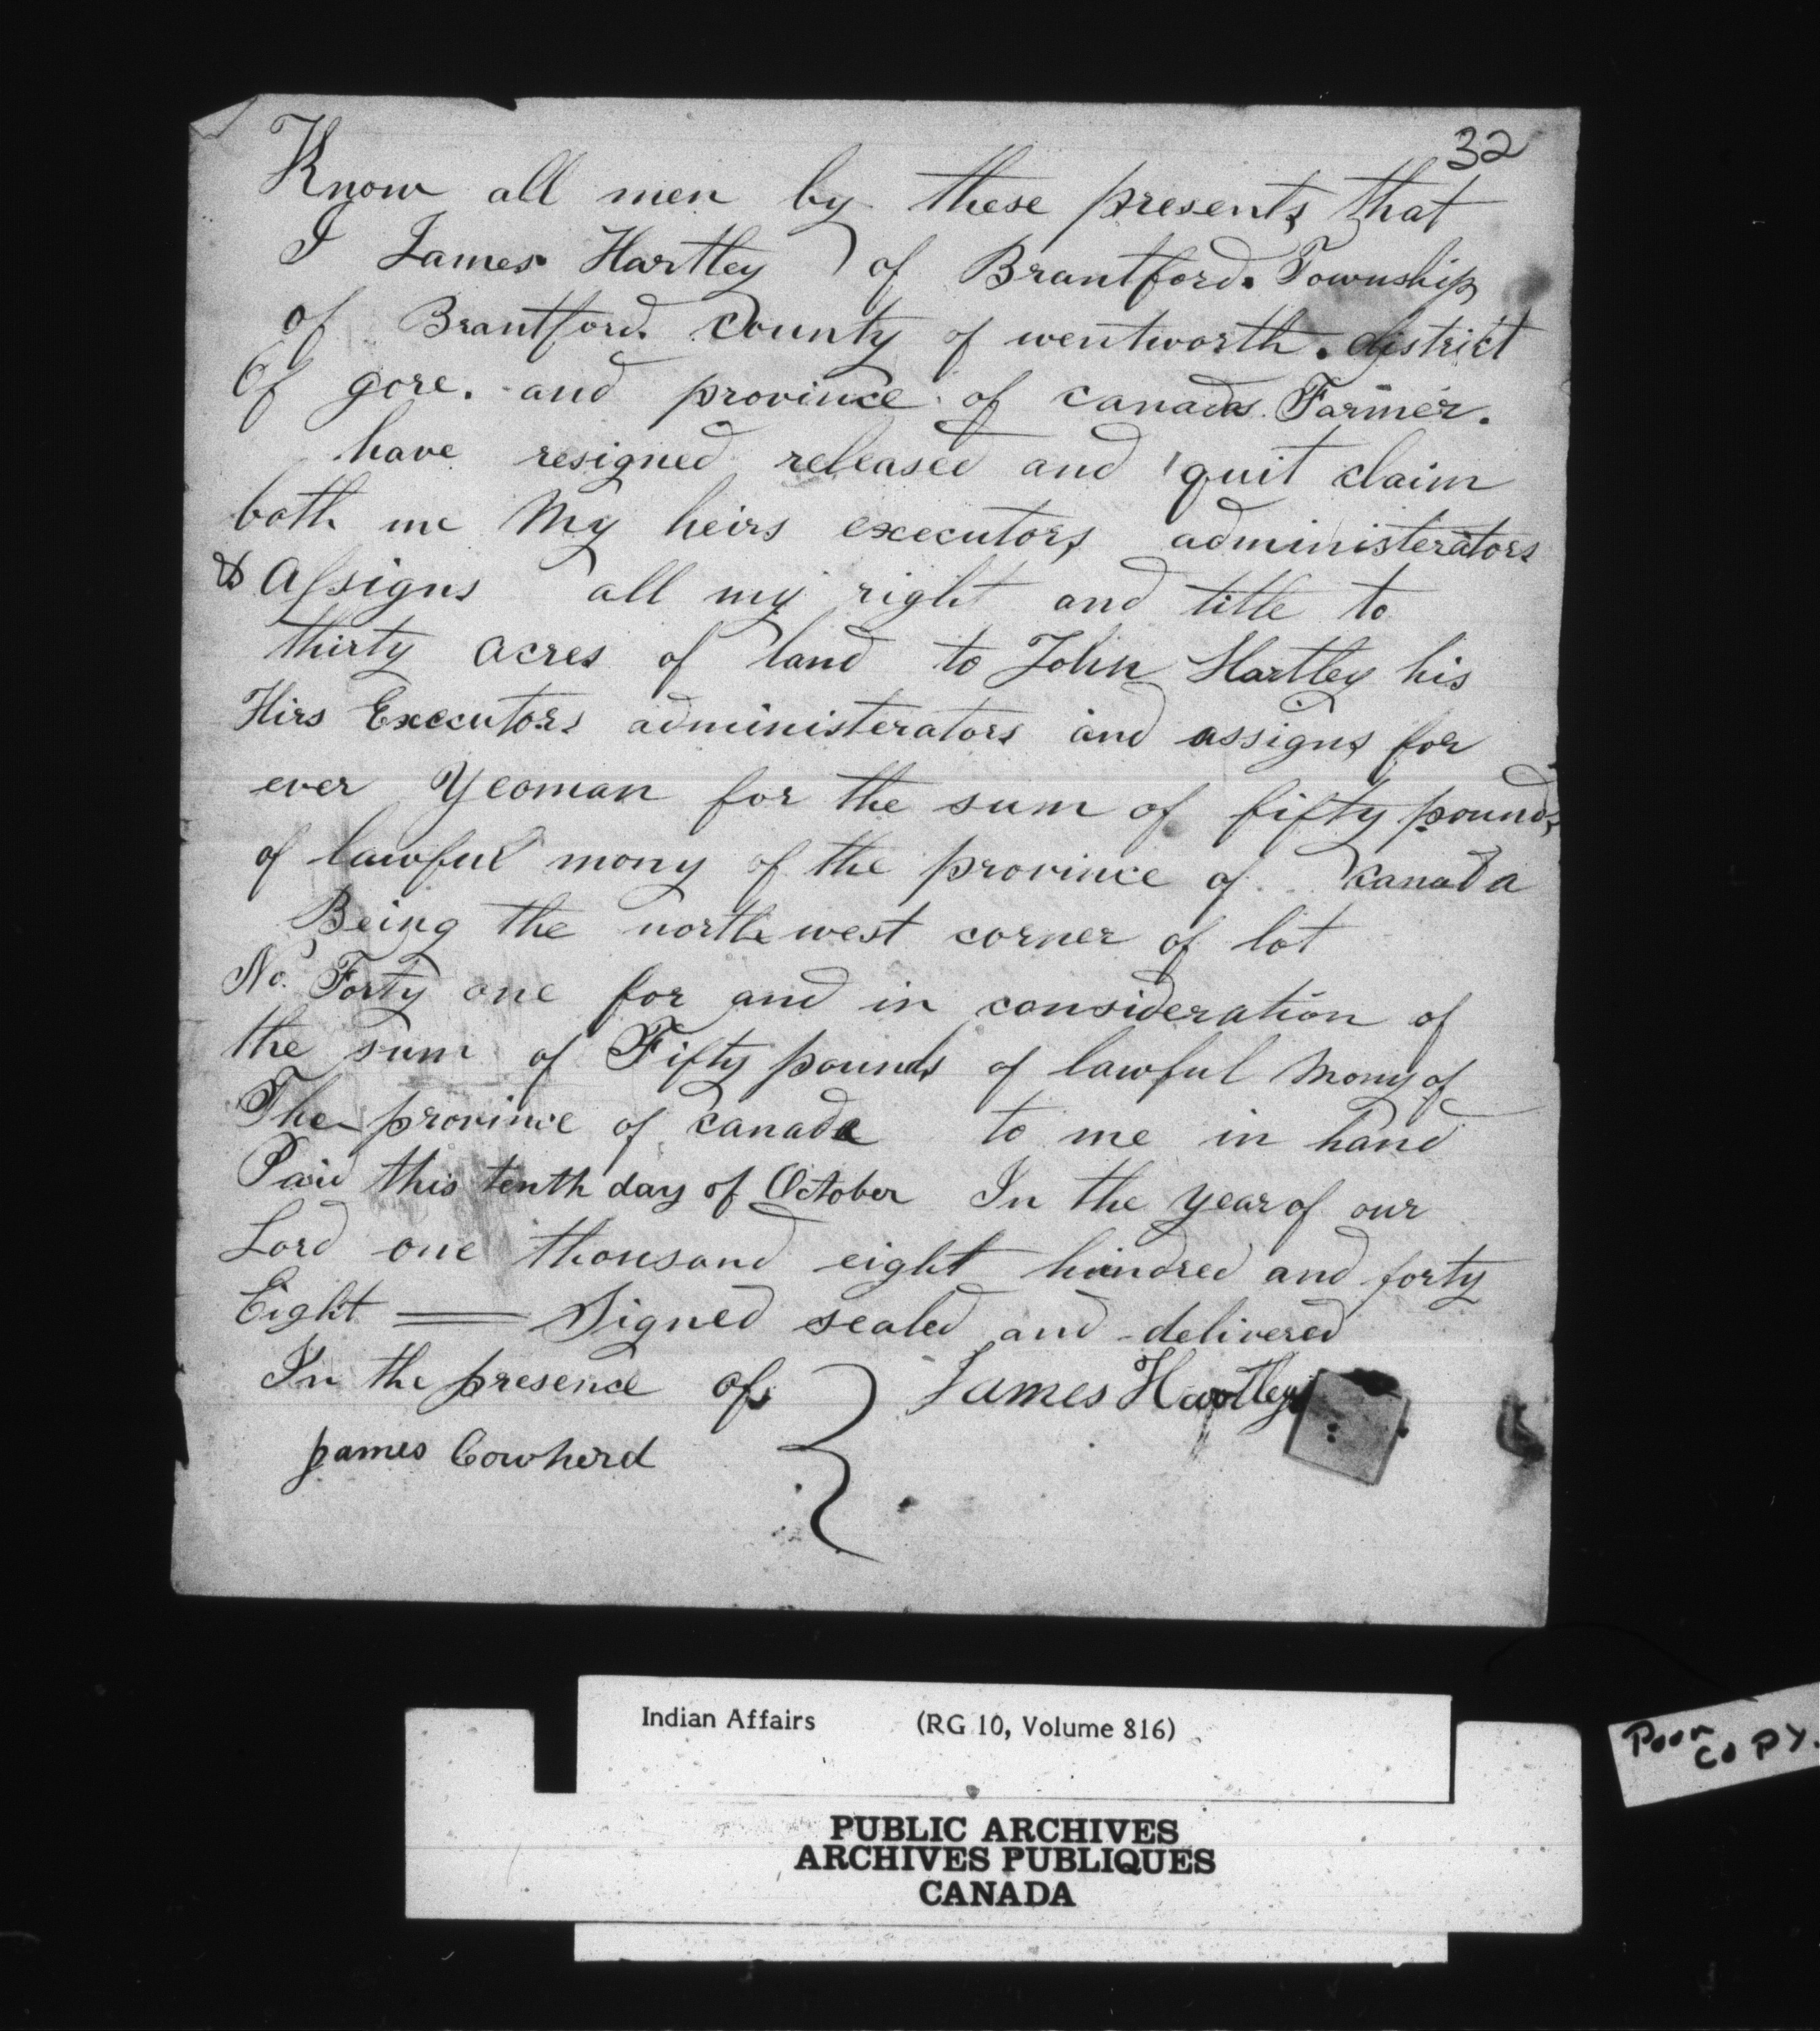 32
Know all men by these presents that
I James Hartley of Brantford. Township
of Brantford. County of wentworth. district
Of gore. and province of canada. Farmer.
have resigned released and quit claim
both me My heirs executors administerators
& Assigns all my right and title to
thirty acres of land to John Hartley his
Hirs Executors administerators and assigns for
ever Yeoman for the sum of fifty pounds
of lawful mony of the province of canada
Being the north west corner of lot
No. Forty one for and in consideration of
the sum of Fifty pounds of lawful Mony of
The province of canada to me in hand
Paid this tenth day of October In the year of our
Lord one thousand eight hundred and forty
Eight == Signed sealed and delivered
In the presence of James Hartley
James Cowherd
Indian Affairs (RG 10, Volume 816)
Poor
COPY.
PUBLIC ARCHIVES
ARCHIVES PUBLIQUES
CANADA